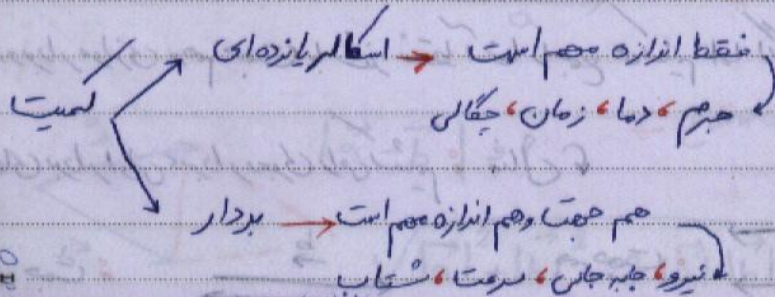 اسکالر یا نرده‌ای → فقط اندازه مهم است
جرم، دما، زمان، چگالی
کمیت
بردار → هم جهت و هم اندازه مهم است
نیرو، جابه جایی، سرعت، شتاب